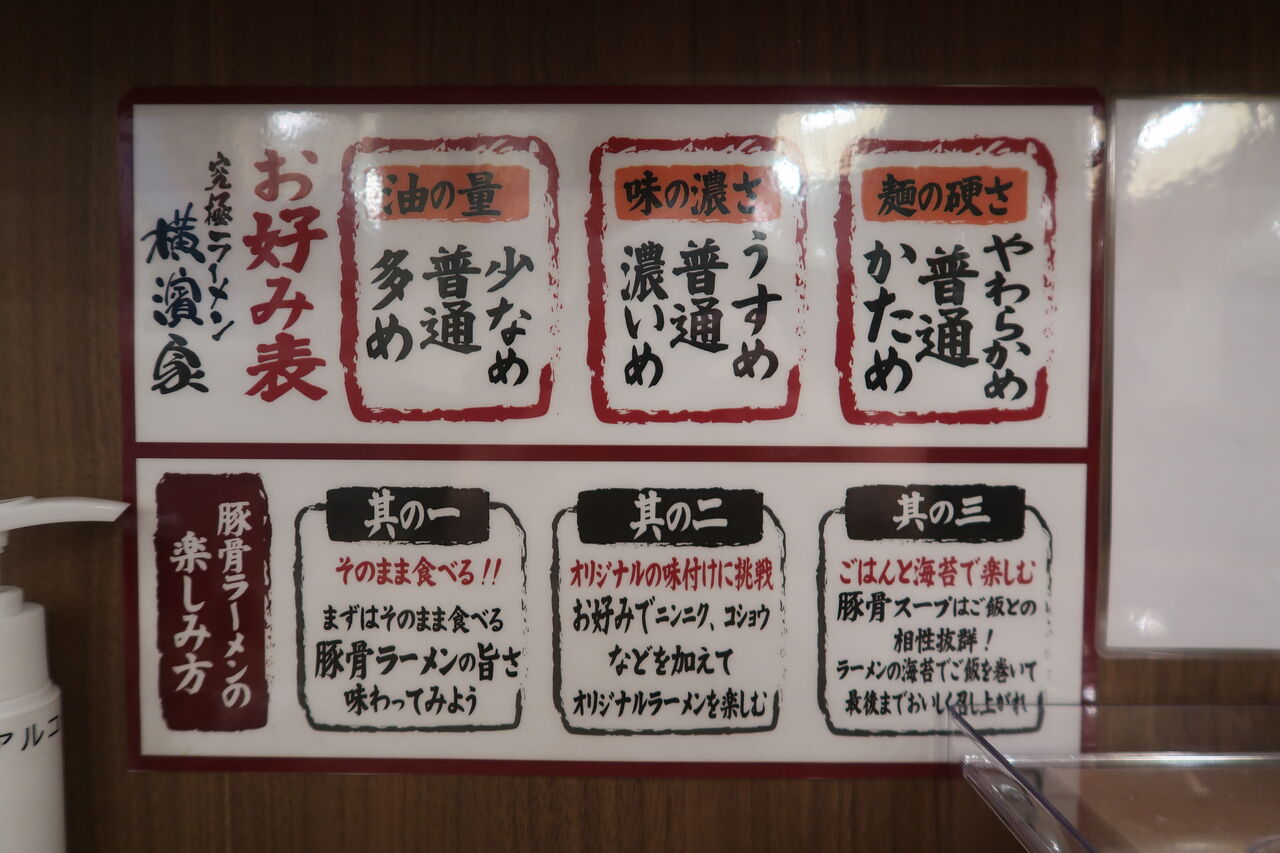 お好み表
究極ラーメン
横濱家
油の量
少なめ
普通
多め
味の濃さ
うすめ
普通
濃いめ
麺の硬さ
やわらかめ
普通
かため
豚骨ラーメンの
楽しみ方
其の一
そのまま食べる!!
まずはそのまま食べる
豚骨ラーメンの旨さ
味わってみよう
其の二
オリジナルの味付けに挑戦
お好みでニンニク、コショウ
などを加えて
オリジナルラーメンを楽しむ
其の三
ごはんと海苔で楽しむ
豚骨スープはご飯との
相性抜群!
ラーメンの海苔でご飯を巻いて
最後までおいしく召し上がれ
アルコ